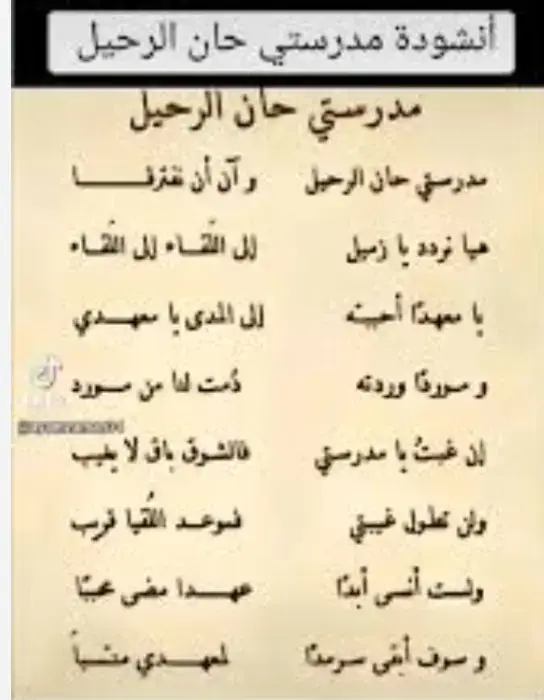 أنشودة مدرستي حان الرحيل
مدرستي حان الرحيل
مدرستي حان الرحيل و آن أن نفترقـــا
هيا نردد يا زميل إلى اللّقـاء إلى اللّقـاء
يا معهدًا أحببته إلى المدى يا معهـدي
و موردًا وردته دُمت لنا من مـورد
إن غبتُ يا مدرستي فالشوق باق لا يغيب
ولن تطول غيبتي فموعـد اللّقيا قريب
ولست أنسى أبدًا عهـدا مضى محببًا
و سوف أبقى سرمدًا لمعهـدي منتسباً